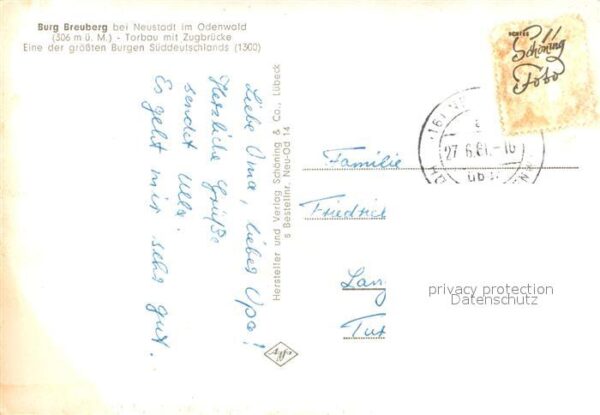 Burg Breuberg bei Neustadt im Odenwald
(306 m ü. M.) - Torbau mit Zugbrücke
Eine der größten Burgen Süddeutschlands (1300)
Liebe Oma, liebes Opa!
Herzliche Grüße
sendet Ulla.
Es geht mir sehr gut.
Hersteller und Verlag Schöning & Co., Lübeck
s Bestellnr. Neu-Od 14
Agfa
ECHTES
Schöning
Foto
(16)
27.6.61.-16
Familie
Friedric
Lang
privacy protection
Datenschutz